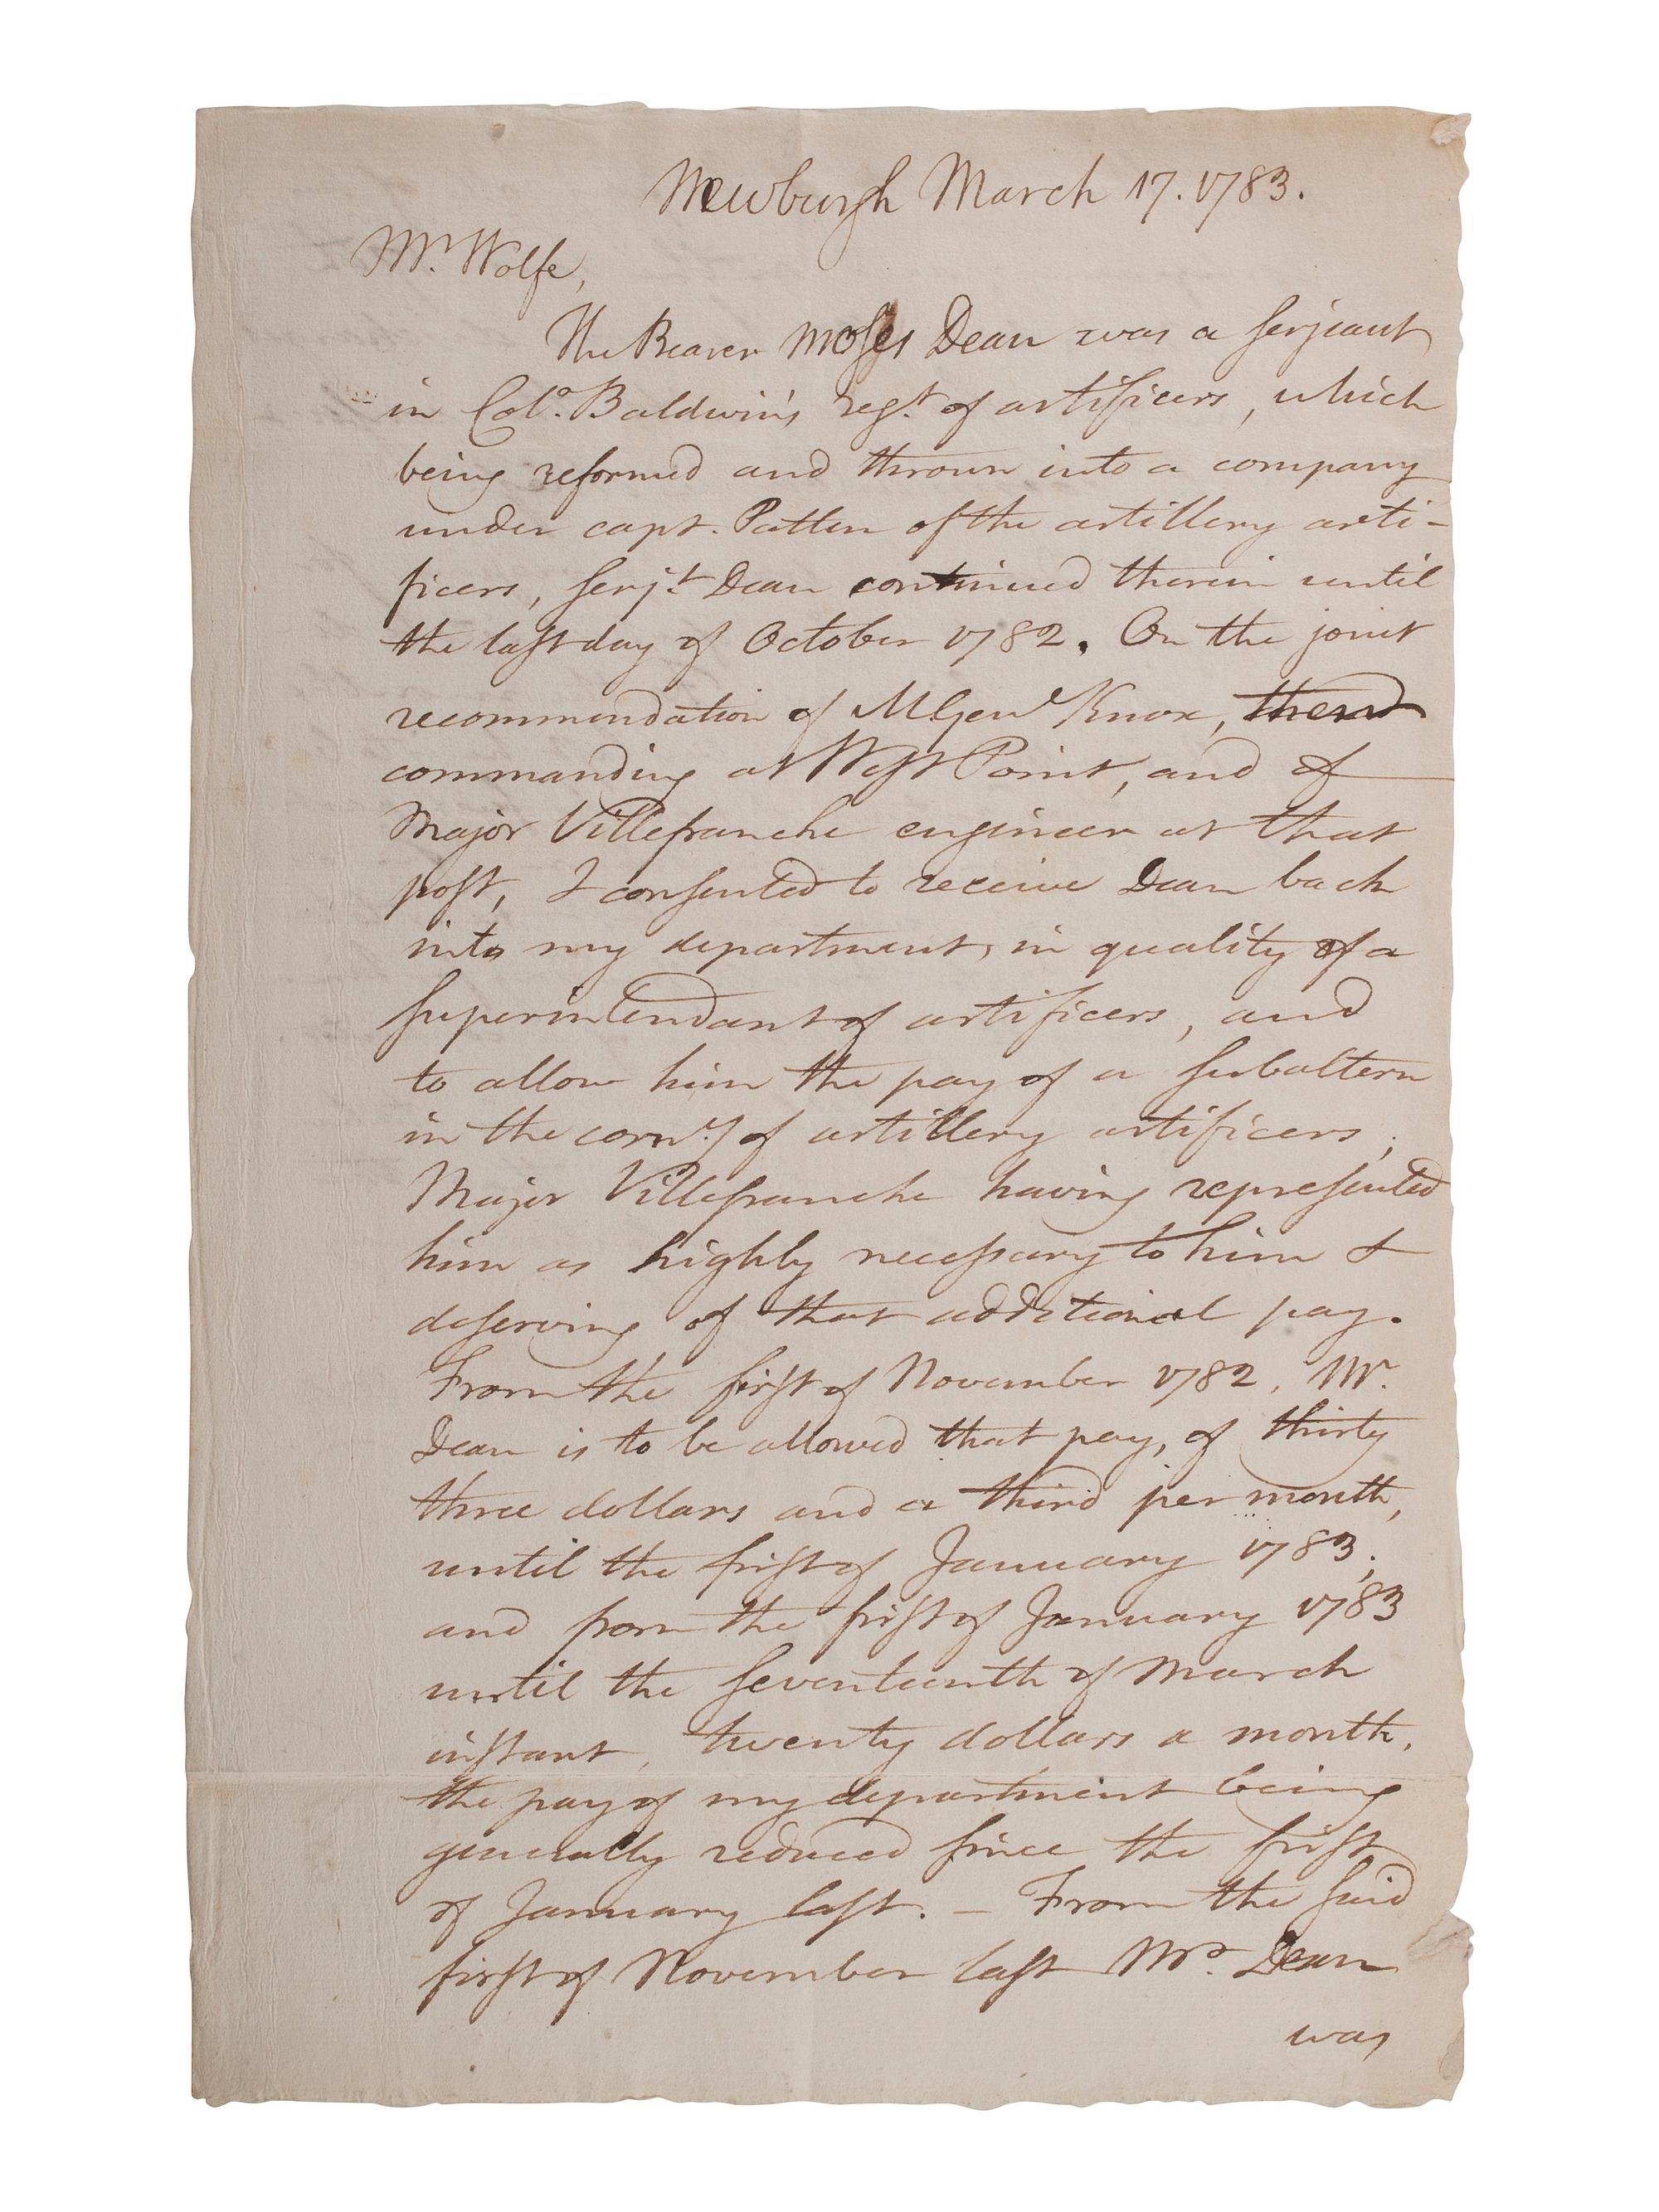 Newburgh March 17. 1783.
Mr. Wolfe,
The Bearer Moses Dean was a serjeant
in Colo. Baldwin's regt. of artificers, which
being reformed and thrown into a company
under capt. Patten of the artillery arti-
ficers, serjt. Dean continued therein until
the last day of October 1782. On the joint
recommendation of M Genl Knox,
commanding at West Point, and of
Major Villefranche engineer at that
post, I consented to receive Dean back
into my department, in quality of a
superintendant of artificers, and
to allow him the pay of a subaltern
in the of artillery artificers,
Major Villefranche having represented
him as highly necessary to him &
deserving of that additional pay.
From the first of November 1782, Mr.
Dean is to be allowed that pay, of thirty
three dollars and a third per month,
until the first of January 1783;
and from the first of January 1783
until the seventeenth of March
instant, twenty dollars a month,
the pay of my department being
generally reduced since the first
of January last. — From the said
first of November last Mr. Dean
was